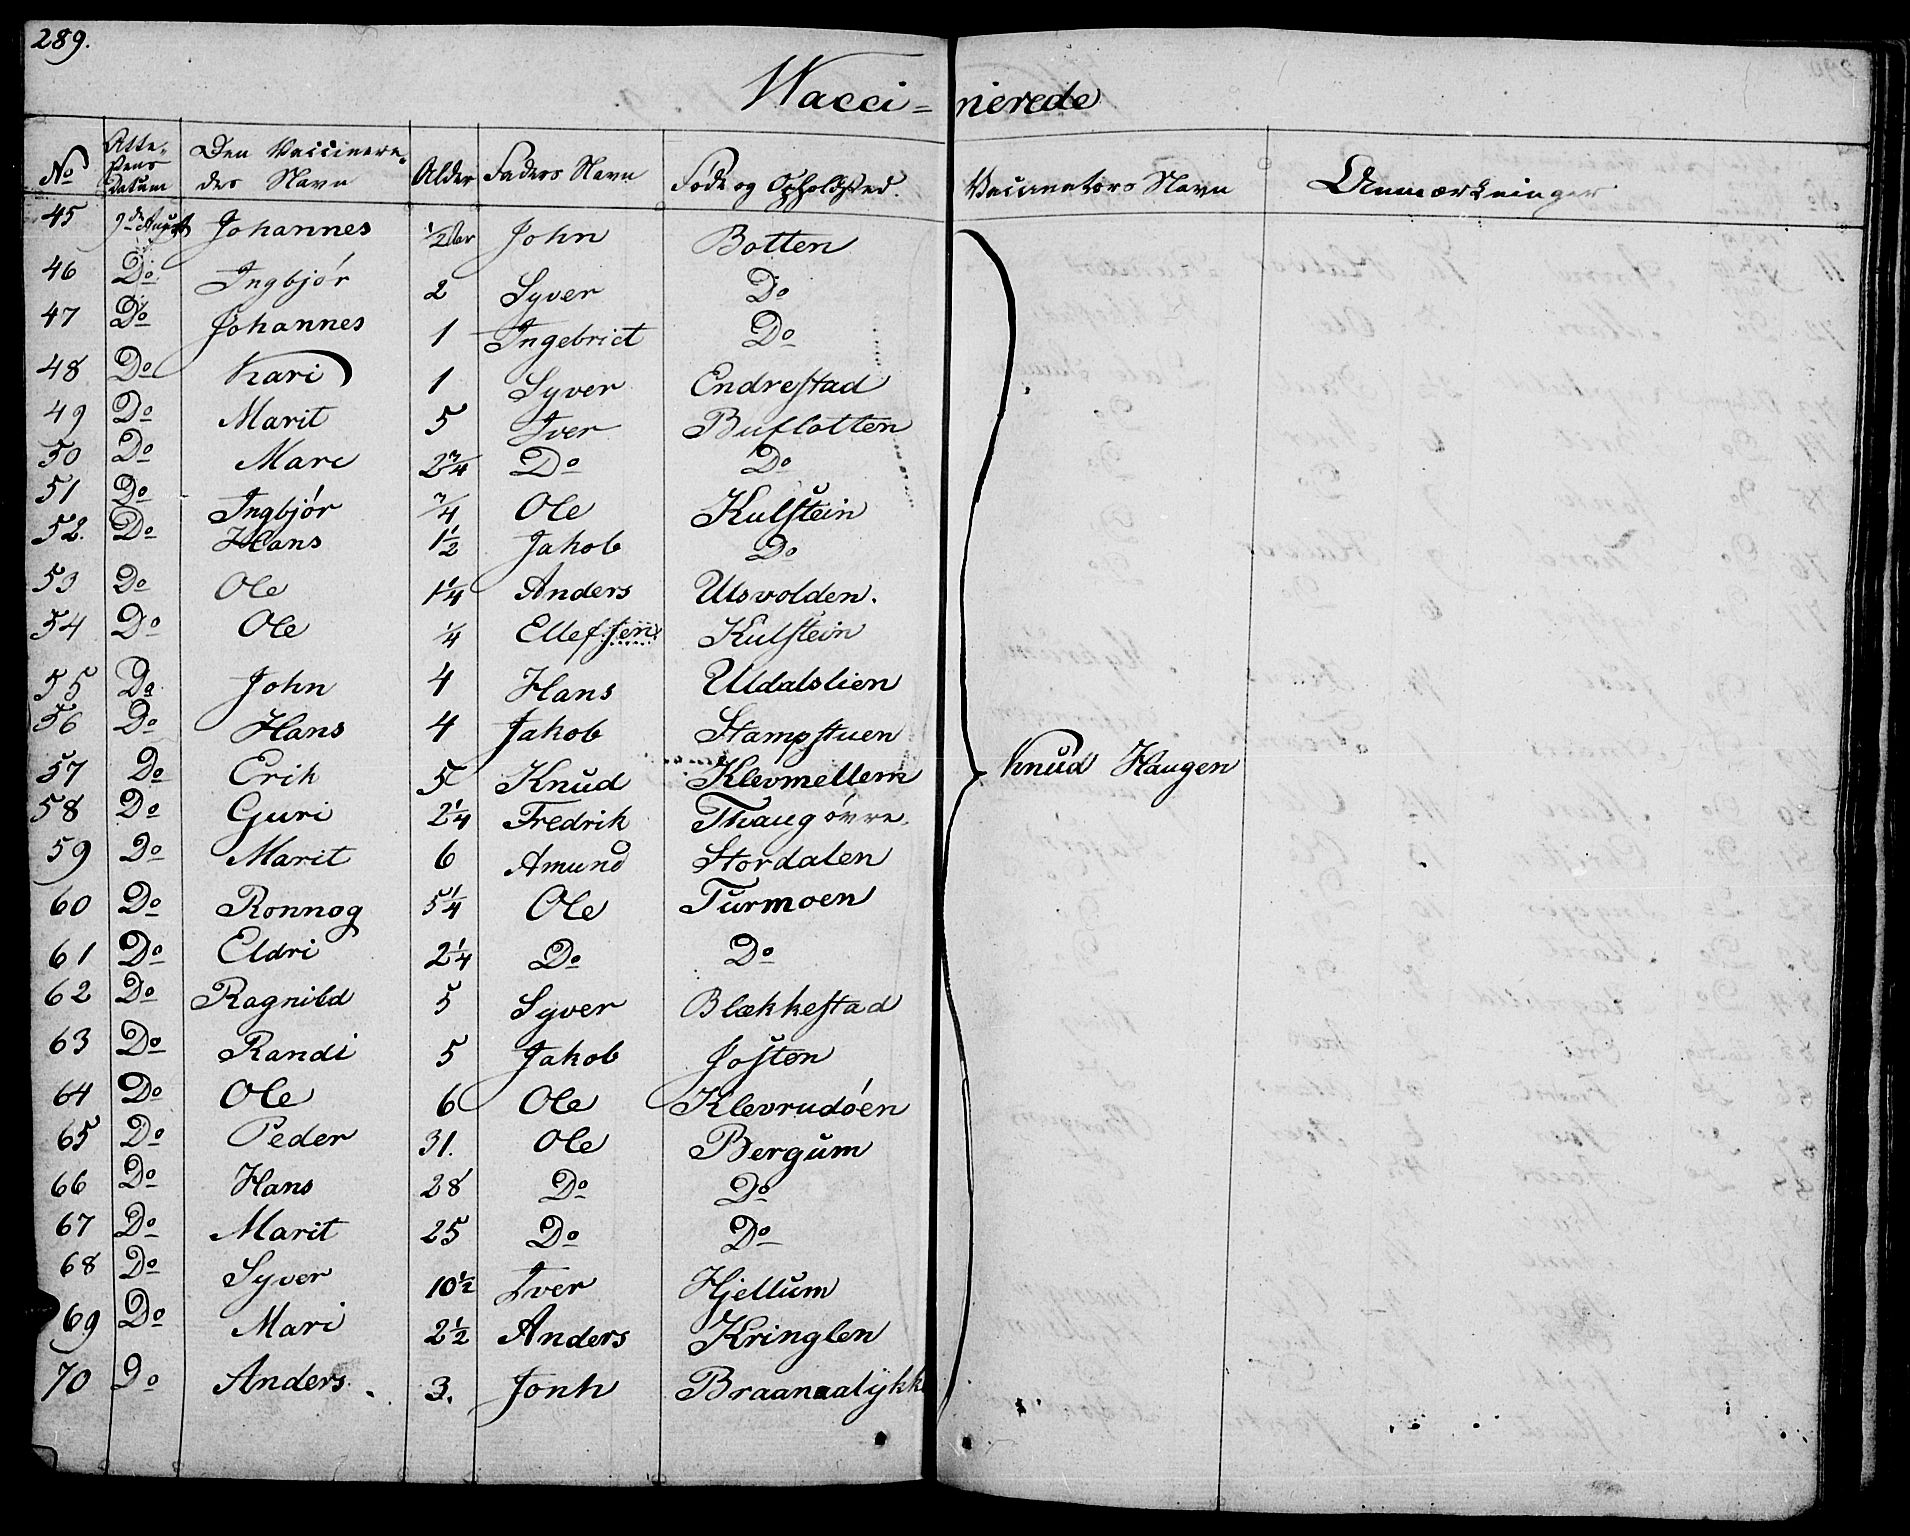 289.
Wacci=nerede
No Atte-stens Datum Den Vaccinere-des Navn Alder Faders Navn Føde og Opholdsted. Vaccinators Navn Anmærkninger
45 9de August Johannes 1/2 Aar John Botten
46 Do Ingbjør 2 Syver Do
47 Do Johannes 1 Ingebrict Do
48 Do Kari 1 Syver Endrestad
49 Do Marit 5 Iver Buflotten
50 Do Mari 2 3/4 Do Do
51 Do Ingbjør 3/4 Ole Kulstein
52. Do Hans 1 1/2 Jakob Do
53 Do Ole 1 1/4 Anders Ulsvolden.
54 Do Ole 1/4 Ellefsen Kulstein
55 Do John 4 Hans Uldalslien
56 Do Hans 4 Jakob Stampstuen
57 Do Erik 5 Knud Klevmellem Knud Haugen
58 Do Guri 2 1/4 Fredrik Thaug øvre.
59 Do Marit 6 Amund Stordalen
60 Do Ronnog 5 1/4 Ole Turmoen
61 Do Eldri 2 1/4 Do Do
62 Do Ragnild 5 Syver Blækkestad
63 Do Randi 5 Jakob Josten
64 Do Ole 6 Ole Klevrudöen
65 Do Peder 31. Ole Bergum
66 Do Hans 28 Do Do
67 Do Marit 25 Do Do
68 Do Syver 10 1/2 Iver Hjellum
69 Do Mari 2 1/2 Anders Kringlen
70 Do Anders. 3. Jonh